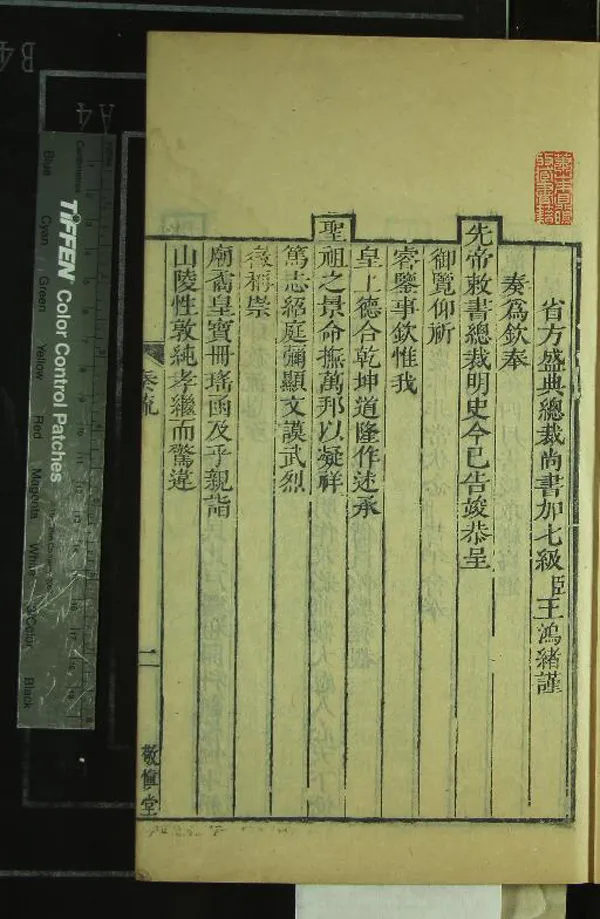 省方盛典總裁尚書加七級臣王鴻緒謹
奏爲欽奉
先帝敕書總裁明史今已告竣恭呈
御覽仰祈
睿鑒事欽惟我
皇上德合乾坤道隆作述承
聖祖之景命撫萬邦以凝祥
篤志紹庭彌顯文謨武烈
徽稱崇
廟矞皇寶冊瑤函及乎親詣
山陵性敦純孝繼而驚違
奏疏
二
敬慎堂
TIFFEN Color Control Patches
Blue
Cyan
Green
Yellow
Red
Magenta
White
3/Color
Black
Centimetres
B4
A4